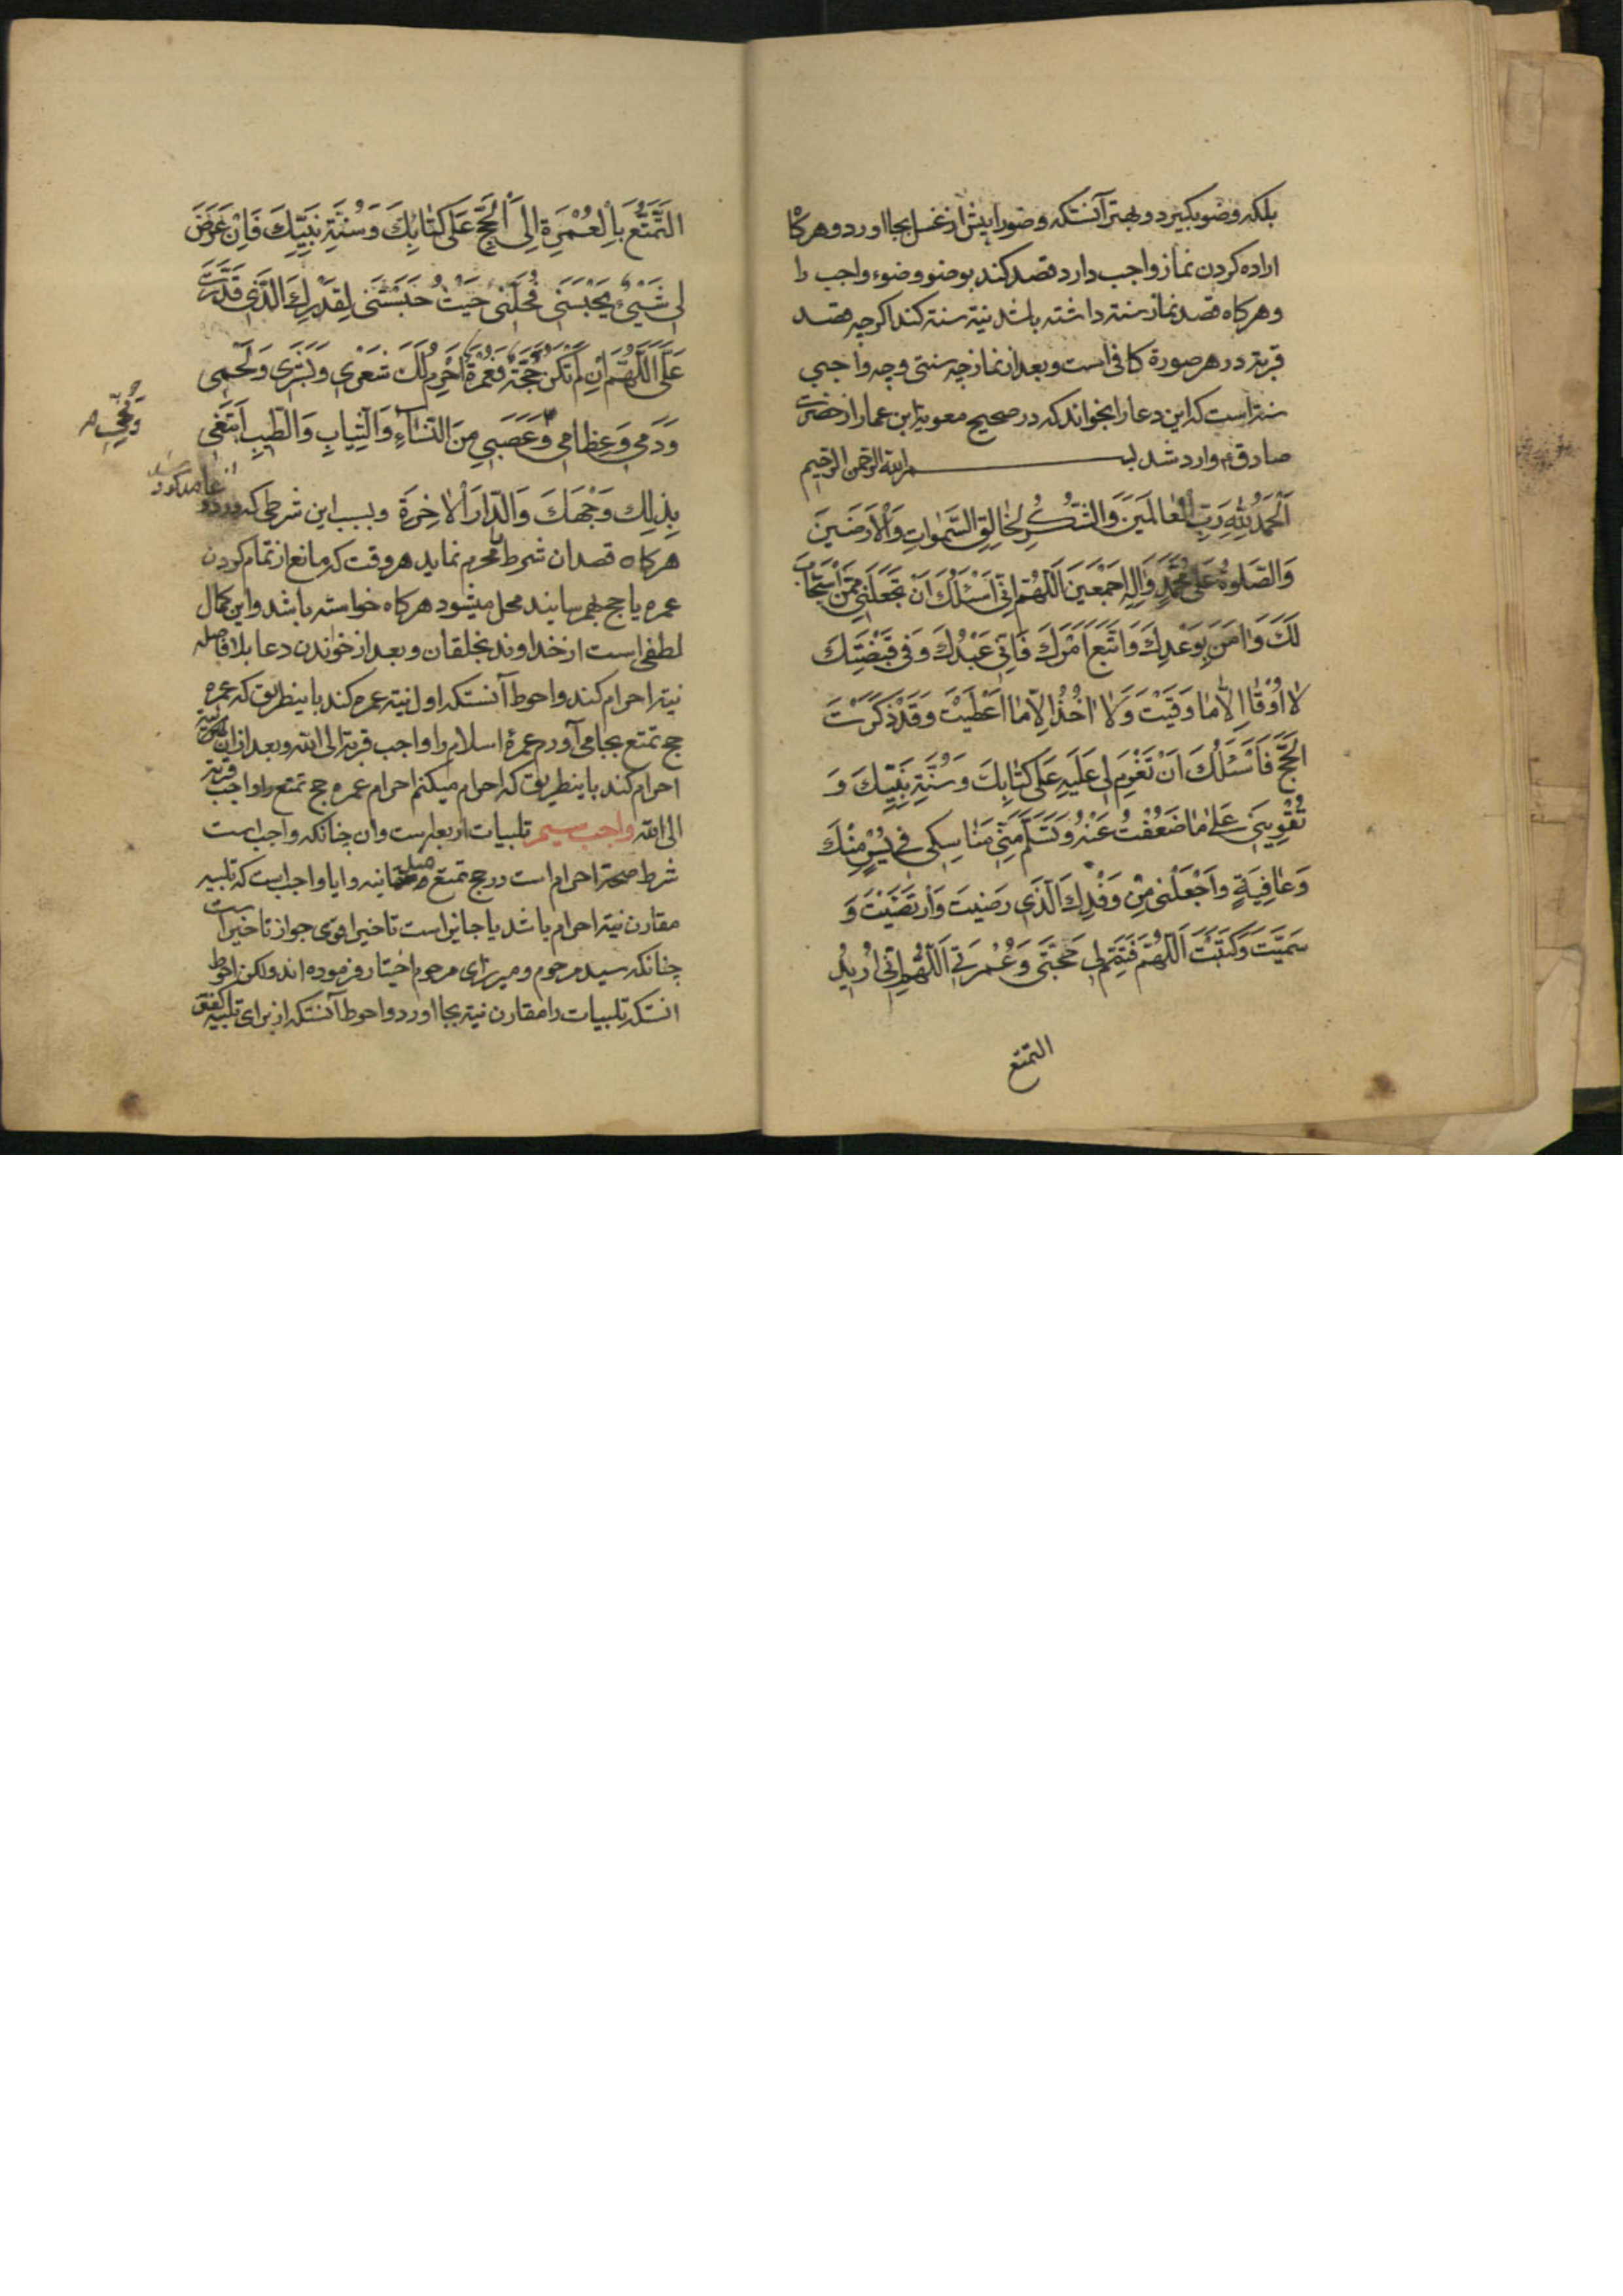 بلکه وضو بکیرد و بهتر آنستکه وضو را پیش از غسل بجا اورد و هرکاه
اراده کردن نماز واجب دارد قصد کند بوضو وضوء واجب را
و هرکاه قصد نماز سنته داشته باشد نیته سنته کند اکرچه قصد
قربته در هر صورة کافی است و بعد از نماز چه سنتی و چه واجبی
سنته است که این دعا را بخواند که در صحیح معویة ابن عمار از حضرت
صادق ع وارد شد بسم الله الرحمن الرحیم
اَلْحَمْدُ لِلّهِ رَبِّ الْعالَمینَ وَالشُّکْرُ لِخالِقِ السَّمواتِ وَالْاَرَضینَ
وَالصَّلوهُ عَلی مُحَمَّدٍ وَالِهِ اَجْمَعینَ اَللّهُمَّ اِنّی اَسْئَلُکَ اَنْ تَجْعَلَنی مِمَّنْ اسْتَجابَ
لَکَ وَامَنَ بِوَعْدِکَ وَاتَّبَعَ اَمْرَکَ فَاِنّی عَبْدُکَ وَفی قَبْضَتِکَ
لا اُوْقا اِلاّ ما وَقَیْتَ وَلا اخُذُ اِلاّ ما اَعْطَیْتَ وَقَدْ ذَکَرْتَ
الْحَجَّ فَاَسْئَلُکَ اَنْ تَعْزِمَ لی عَلَیهِ عَلی کِتابِکَ وَسُنَّةِ نَبِیِّکَ وَ
تُقْوِیَنی عَلی ما ضَعُفْتُ عَنْهُ وَتَسَلَّمَ مِنّی مَناسِکی فی یُسْرٍ مِنْکَ
وَعافِیَةٍ وَاجْعَلْنی مِنْ وَفْدِکَ الَّذی رَضیتَ وَارْتَضَیْتَ وَ
سَمَّیْتَ وَکَتَبْتَ اَللّهُمَّ فَتَمِّمْ لی حَجَّتی وَعُمْرَتی اَللّهُمَّ اِنّی اُریدُ
التمتع
التَّمَتُّعَ بِالْعُمْرَةِ اِلَی الْحَجِّ عَلی کِتابِکَ وَسُنَّةِ نَبِیِّکَ فَاِنْ عَرَضَ
لی شَیْیءٌ یَحْبِسُنی فَحُلَّنی حَیْثُ حَبَسْتَنی لِقَدَرِکَ الَّذی قَدَّرْتَ
عَلَیَّ اَللّهُمَّ اِنْ لَمْ تَکُنْ حَجَّةً فَعُمْرَةً اَحْرَمَ لَکَ شَعْری وَبَشَری وَلَحْمی
وَدَمی وَعِظامی وَعَصَبی مِنَ النِّساءِ وَالثِّیابِ وَالطّیبِ اَبْتَغی
وَمُخّی
بِذلِکَ وَجْهَکَ وَالدّارَ الْاخِرَةَ و بسبب این شرطی که در دو
هرکاه قصد ان شرط محرم نماید هر وقت که مانع از تمام کردن
عمره یا حج بهم رسایند محل میشود هرکاه خواسته باشد و این کمال
لطفی است از خداوند بخلقان و بعد از خواندن دعا بلافاصله
نیته احرام کند و احوط آنستکه اول نیته عمره کند باینطریق که عمره
حج تمتع بجا می آورم عمرهٔ اسلام را واجب قربة الی الله و بعد از ان نیة
احرام کند باینطریق که احرام میکنم احرام عمره حج تمتع را واجب قربة
الی الله واجب سیم تلبیات اربعه است و ان چنانکه واجب است
شرط صحته احرام است در حج تمتع و ایا واجب است که تلبیه
مقارن نیته احرام باشد یا جایز است تاخیر اقوی جواز تاخیر است
چنانکه سید مرحوم و میرزای مرحوم اختیار فرموده اند ولکن احوط
انستکه تلبیات را مقارن نیته بجا اورد و احوط آنستکه از برای تلبیه